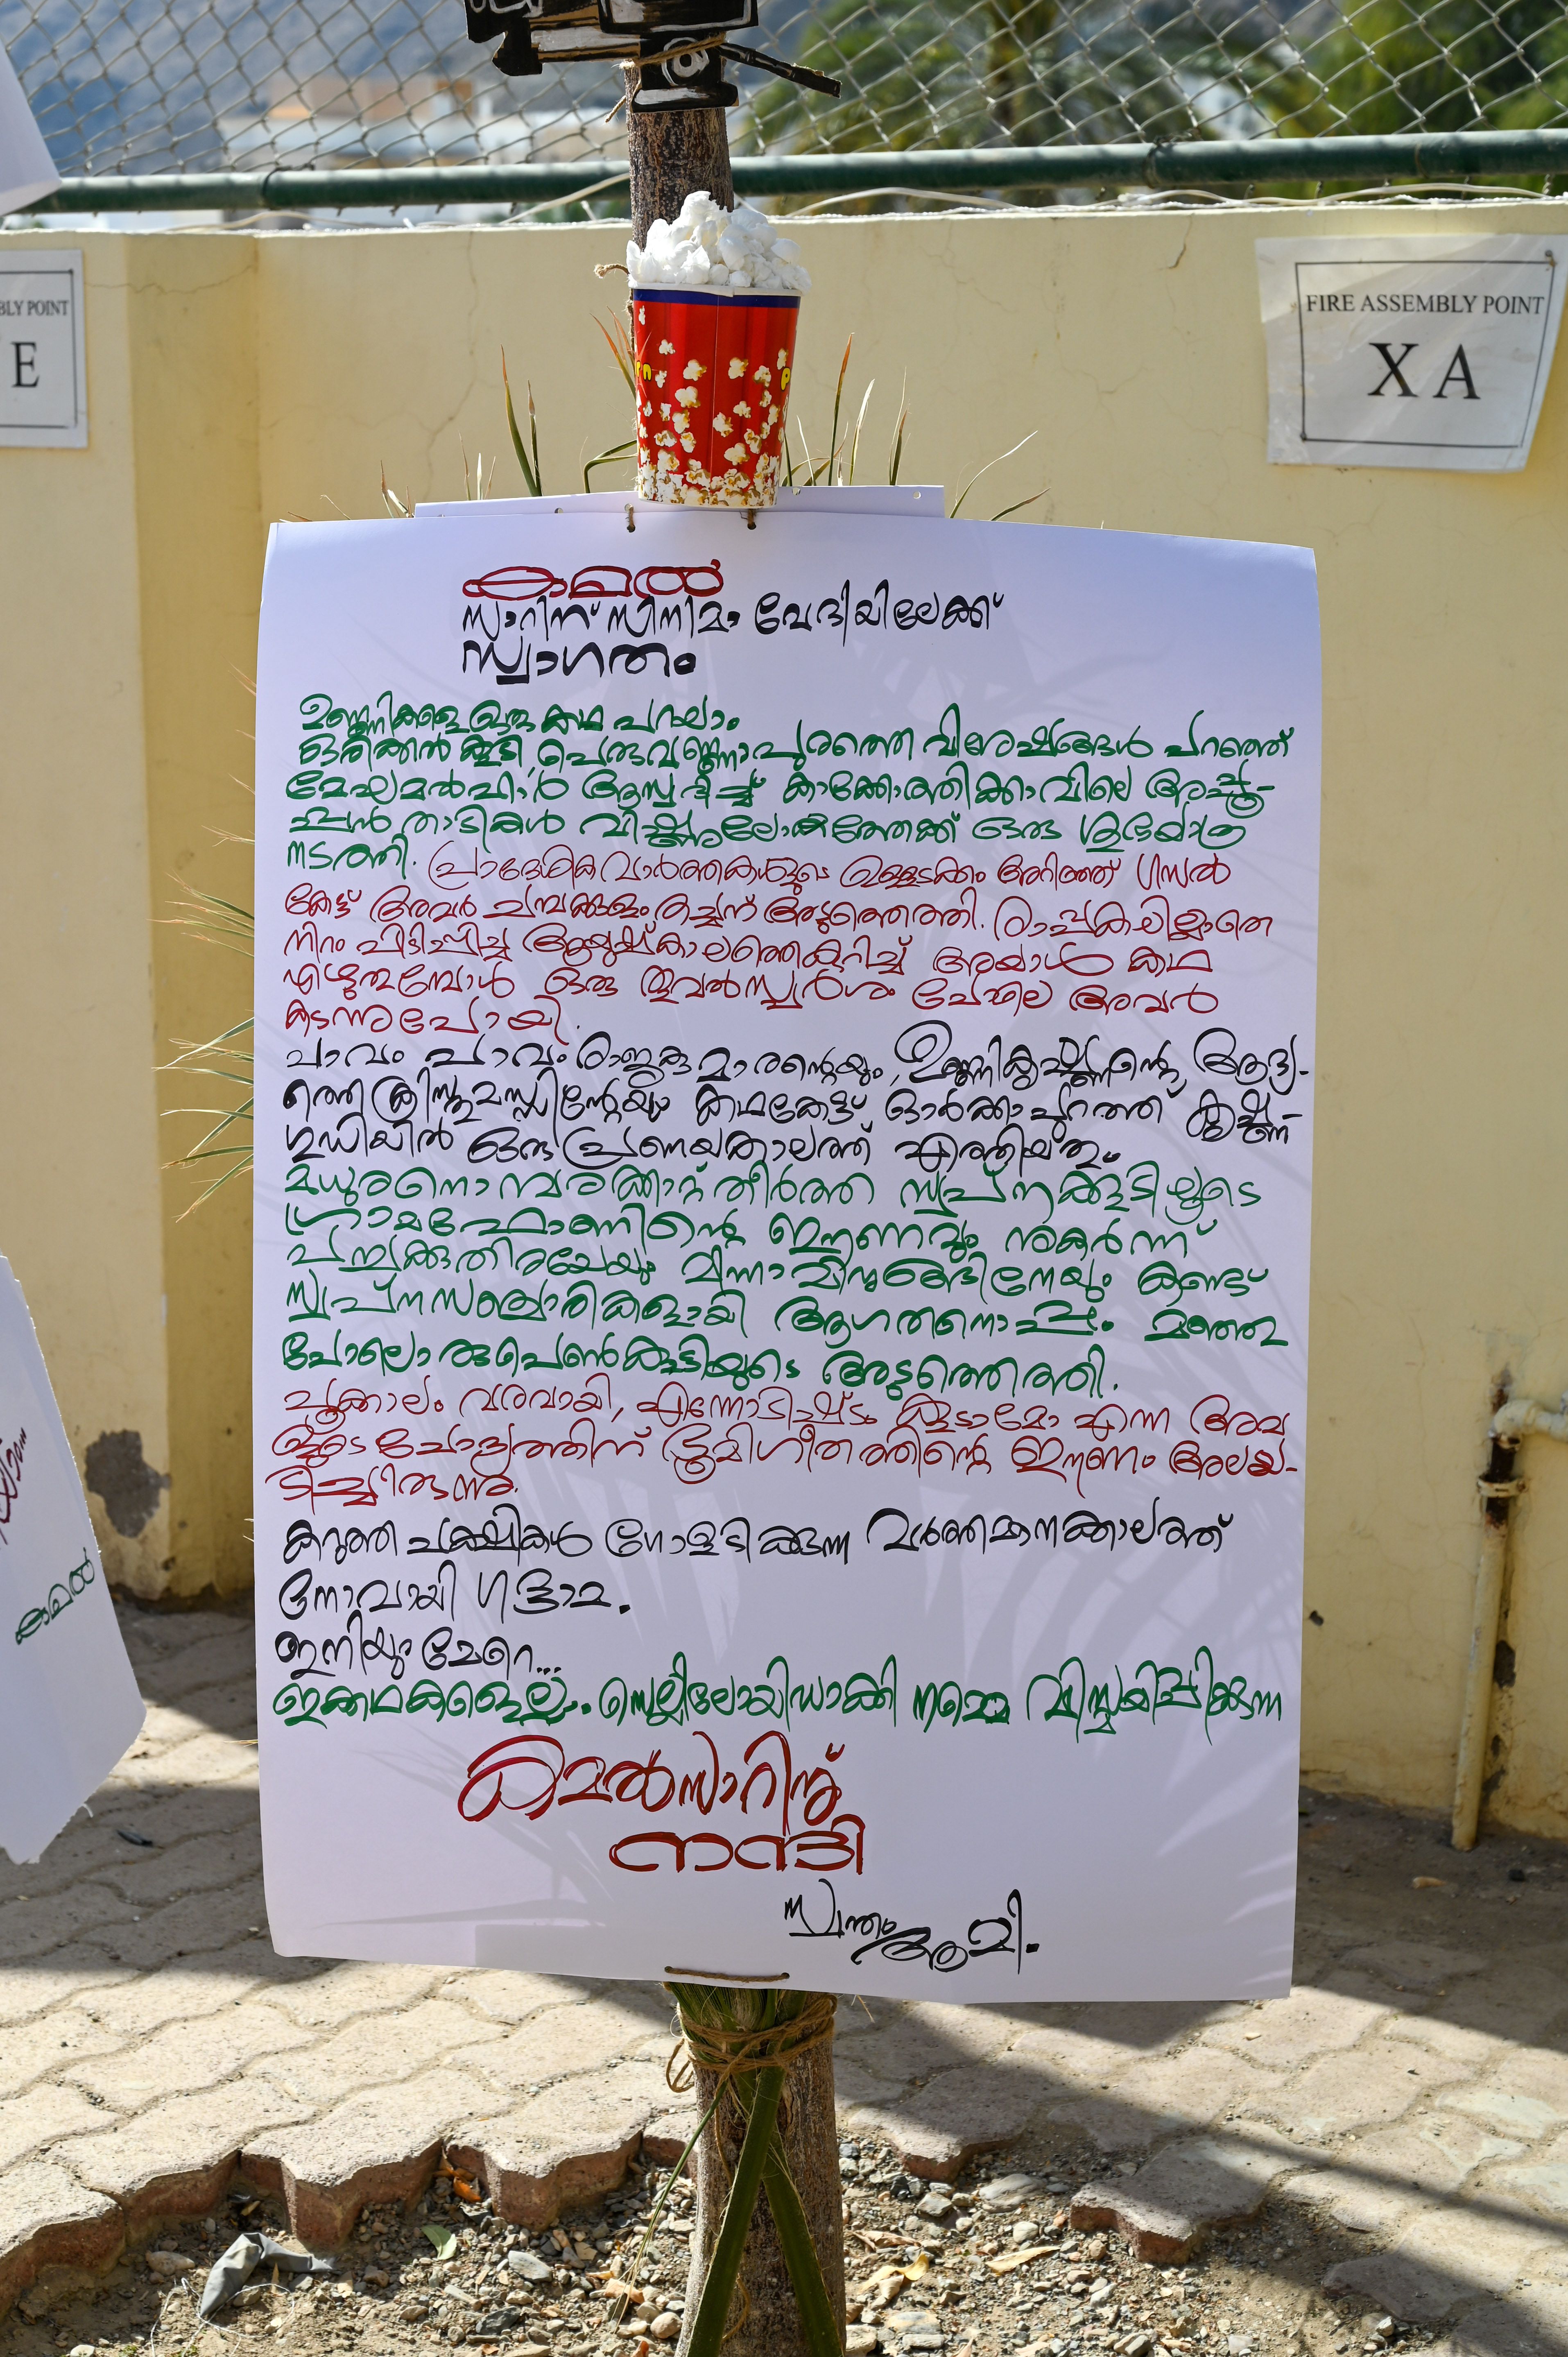 BLY POINT
E
FIRE ASSEMBLY POINT
X A
കമൽ
സാറിന് സിനിമാ വേദിയിലേക്ക്
സ്വാഗതം
ഉണ്ണികളെ ഒരു കഥ പറയാം
ഒരിക്കൽ കൂടി, പെരുവണ്ണാപുരത്തെ വിശേഷങ്ങൾ പറഞ്ഞ്
മേഘമൽഹാർ ആസ്വദിച്ച് കാക്കോത്തിക്കാവിലെ അപ്പൂ-
പ്പൻ താടികൾ വിഷ്ണുലോകത്തേക്ക് ഒരു ശുഭയാത്ര
നടത്തി. പ്രാദേശികവാർത്തകളുടെ ഉള്ളടക്കം അറിഞ്ഞ് ഗസൽ
കേട്ട് അവർ ചമ്പക്കുളം തച്ചന് അടുത്തെത്തി. രാപ്പകലില്ലാതെ
നിറം പിടിപ്പിച്ച ആയുഷ്കാലത്തെകുറിച്ച് അയാൾ കഥ
എഴുതുമ്പോൾ ഒരു തൂവൽസ്പർശം പോലെ അവർ
കടന്നുപോയി.
പാവം പാവം രാജകുമാരന്റെയും, ഉണ്ണികൃഷ്ണന്റെ ആദ്യ-
ത്തെ ക്രിസ്തുമസ്സിന്റേയും കഥകേട്ട് ഓർക്കാപ്പുറത്ത് കൃഷ്ണ-
ഗുഡിയിൽ ഒരു പ്രണയകാലത്ത് എത്തിയതും
മധുരനൊമ്പരക്കാറ്റ് തീർത്ത സ്വപ്നക്കൂടിലൂടെ
ഗ്രാമഫോണിന്റെ ഈണവും നുകർന്ന്
പച്ചക്കുതിരയേയും മിന്നാമിനുങ്ങിനേയും കണ്ട്
സ്വപ്നസഞ്ചാരികളായി ആഗതനൊപ്പം മഞ്ഞു
പോലൊരു പെൺകുട്ടിയുടെ അടുത്തെത്തി.
പൂക്കാലം വരവായി, എന്നോടിഷ്ടം കൂടാമോ എന്ന അവ
ളുടെ ചോദ്യത്തിന് ഭൂമിഗീതത്തിന്റെ ഈണം അലയ-
ടിച്ചിരുന്നു.
കറുത്ത പക്ഷികൾ ഗോളടിക്കുന്ന വർത്തമാനക്കാലത്ത്
നോവായി ഗദ്ദാമ.
ഇനിയും ഏറെ...
ഇക്കഥകളെല്ലാം സെല്ലുലോയിഡാക്കി നമ്മെ വിസ്മയിപ്പിക്കുന്ന
കമൽസാറിനു്
നന്ദി
സ്വന്തം ആമി.
കമൽ